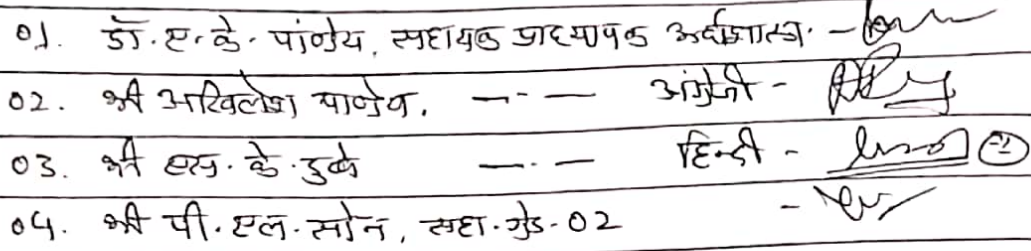 01. डॉ. ए. के. पांडेय, सहायक प्राध्यापक अर्थशास्त्र. -
02. श्री अखिलेश पाण्डेय, —·— अंग्रेजी -
03. श्री एस. के. दुबे —·— हिन्दी -
04. श्री पी. एल. सोन, सहा. ग्रेड-02 -